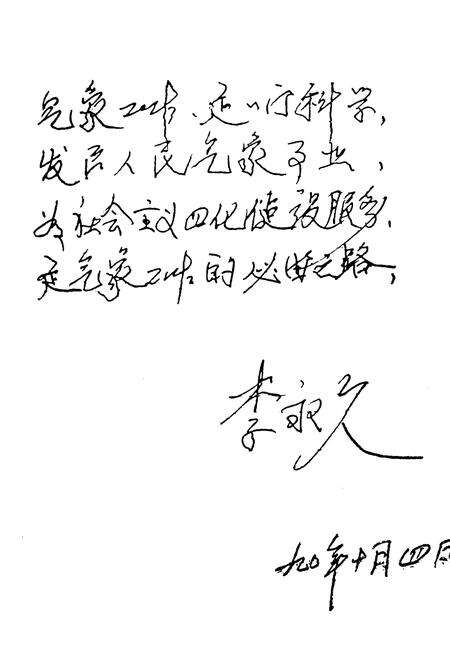 气象工作是一门科学,
发展人民气象事业,
为社会主义四化建设服务,
是气象工作的必由之路,
李永久
九〇年十月四日